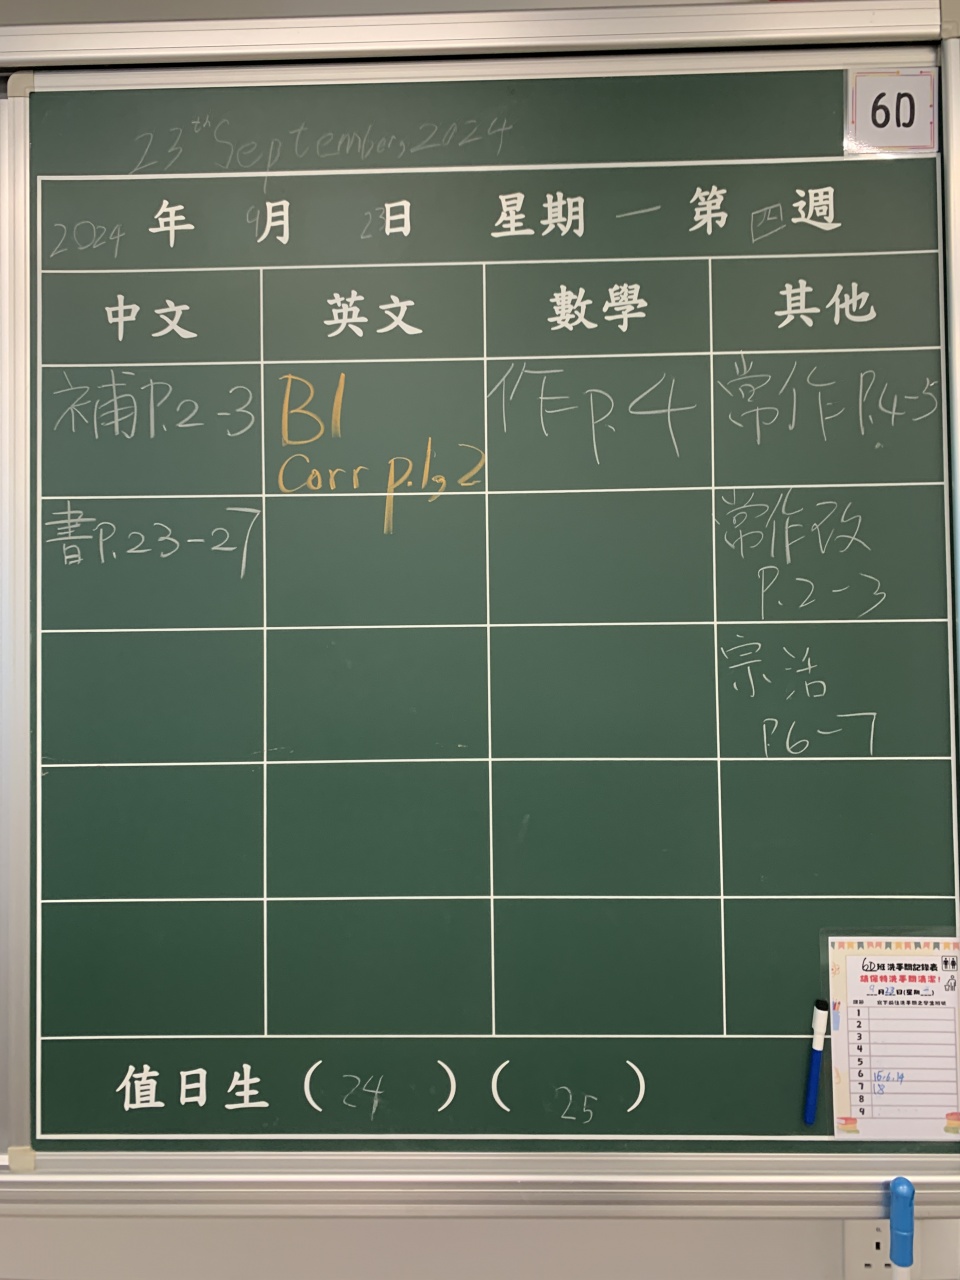 6D
23th September, 2024
2024 年 9 月 23 日 星期 一 第 四 週
中文 英文 數學 其他
補P.2-3
B1
Corr p.1, 2
作P.4
常作 P.4-5
書P.23-27
常作改
P.2-3
宗活
P.6-7
值日生 ( 24 ) ( 25 )
6D班洗手間記錄表
請保持洗手間清潔!
1
2
3
4
5
6 16.6.14
7 18
8
9